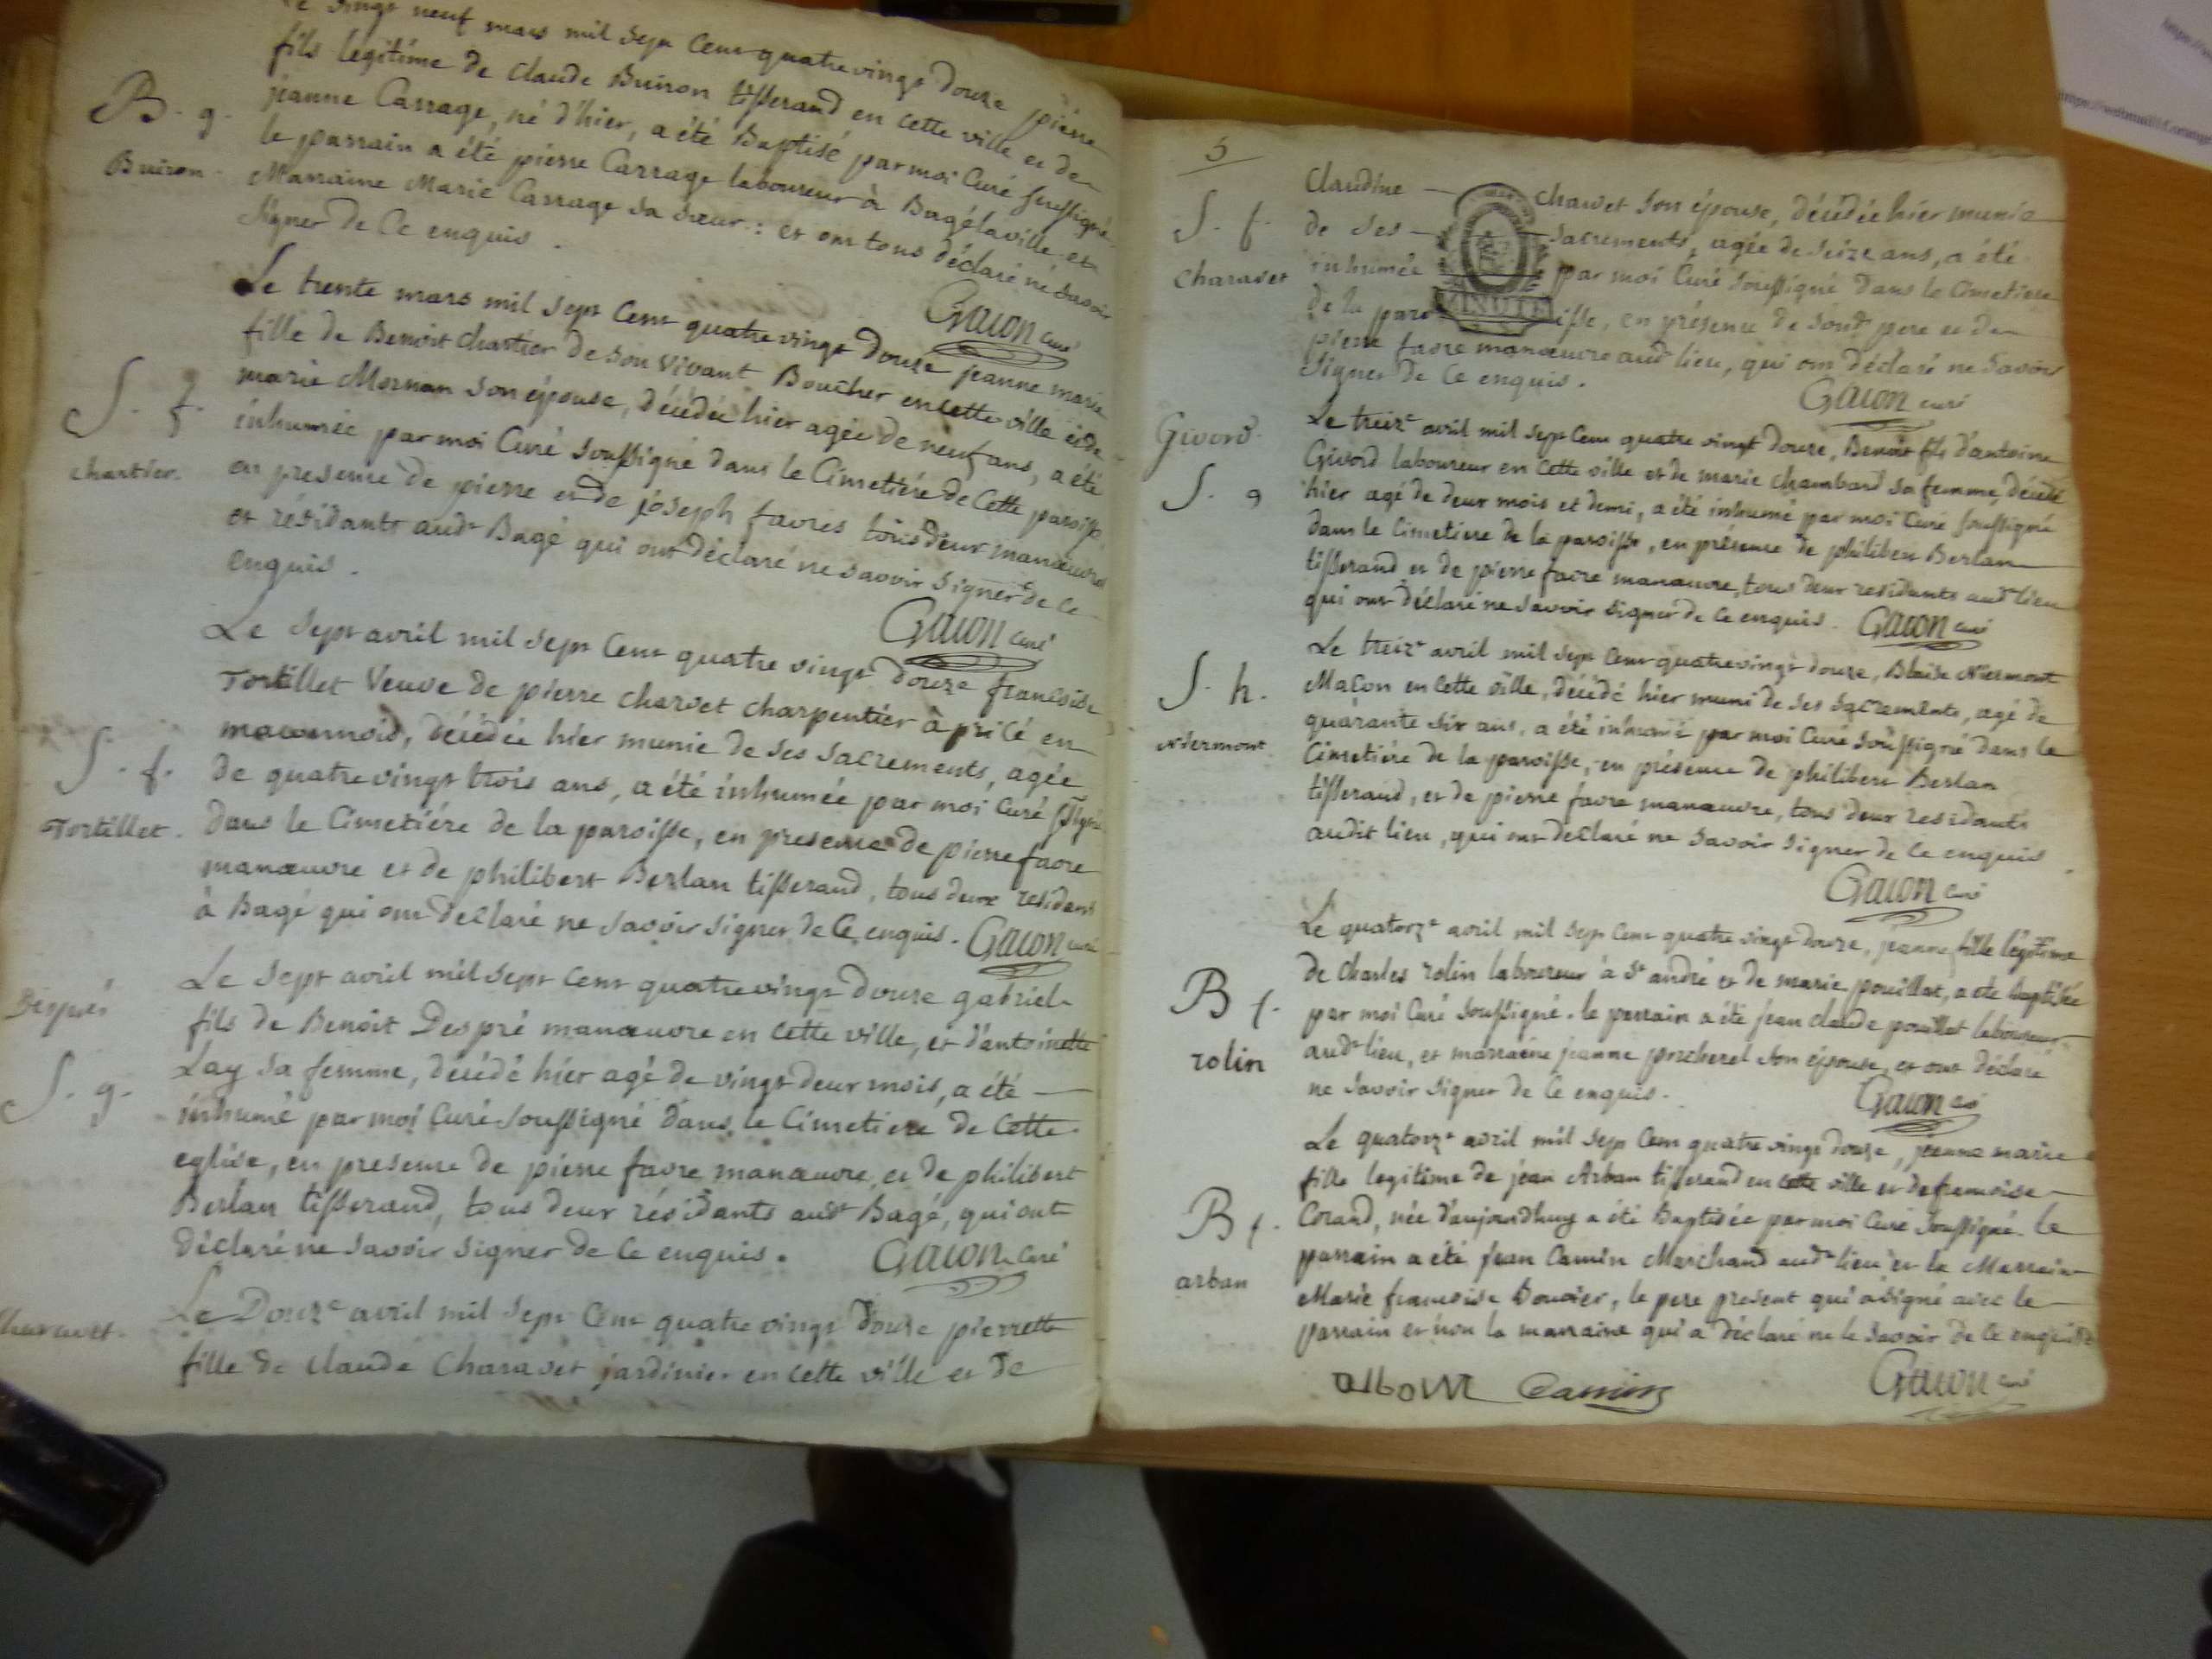 Le vingt neuf mars mil sept cent quatre vingt douze pierre
fils legitime de claude Buiron tisserand en cette ville et de
B. g.
jeanne Carrage, né d'hier, a été Baptisé par moi Curé soussigné
le parrain a été pierre Carrage laboureur à Bagé la ville et
Buiron
Marraine Marie Carrage sa sœur : et ont tous déclaré ne savoir
signer de ce enquis.
Gacon curé
Le trente mars mil sept cent quatre vingt douze jeanne marie
fille de Benoit chartier de son vivant Boucher en cette ville et de
S. f.
marie Mornan son épouse, décédée hier agée de neuf ans, a été
inhumée par moi Curé soussigné dans le Cimetiére de Cette paroisse
chartier.
en presence de pierre et de joseph favres tous deux manœuvres
et résidants audt Bagé qui ont déclaré ne savoir signer de ce
enquis.
Gacon curé
Le sept avril mil sept cent quatre vingt douze francoise
Tortillet Veuve de pierre charvet charpentier à pricé en
maconnois, décédée hier munie de ses sacrements, agée
S. f.
de quatre vingt trois ans, a été inhumée par moi Curé
Tortillet.
dans le Cimetiére de la paroisse, en presence de pierre favre
manœuvre et de philibert Berlan tisserand, tous deux residans
à Bagé qui ont declaré ne savoir signer de Ce enquis. Gacon curé
Le sept avril mil sept cent quatre vingt douze gabriel
Despré
fils de Benoit Despré manœuvre en cette ville, et d'antoinette
Lay sa femme, décédé hier agé de vingt deux mois, a été
S. g.
inhumé par moi Curé soussigné dans le Cimetiere de Cette
eglise, en presence de pierre favre manœuvre, et de philibert
Berlan tisserand, tous deux résidants audt Bagé, qui ont
déclaré ne savoir signer de Ce enquis. Gacon curé
Le Douze avril mil sept cent quatre vingt douze pierrette
Charavet.
fille de claude Charavet jardinier en cette ville et de
5
Claudine charvet son épouse, décédée hier munie
S. f.
de ses sacrements, agée de seize ans, a été
Charavet
inhumée par moi Curé soussigné dans le Cimetiere
MINUTE
de la paroisse, en présence de sondt pere et de
pierre favre manœuvre audt lieu, qui ont déclaré ne savoir
signer de Ce enquis.
Gacon curé
Le treize avril mil sept Cent quatre vingt douze, Benoit fils d'antoine
Givord
Givord laboureur en cette ville et de marie chambard sa femme, décédé
S. g
hier agé de deux mois et demi, a été inhumé par moi Curé soussigné
dans le Cimetiere de la paroisse, en présence de philibert Berlan
tisserand et de pierre favre manœuvre, tous deux residants audt lieu
qui ont déclaré ne savoir signer de Ce enquis. Gacon curé
Le treize avril mil sept Cent quatre vingt douze, Blaise Niermont
S. h.
Maçon en cette ville, décédé hier muni de ses sacrements, agé de
quarante six ans, a été inhumé par moi Curé soussigné dans le
Niermont
Cimetiére de la paroisse, en présence de philibert Berlan
tisserand, et de pierre favre manœuvre, tous deux residants
audit lieu, qui ont declaré ne savoir signer de Ce enquis
Gacon curé
Le quatorze avril mil sept Cent quatre vingt douze, jeanne fille légitime
de Charles rolin laboureur à St andré et de marie pouillat, a été baptisée
B f.
par moi Curé soussigné. le parrain a été jean claude pouillat laboureur
rolin
audt lieu, et marraine jeanne porcheret son épouse, et ont déclaré
ne savoir signer de Ce enquis.
Gacon curé
Le quatorze avril mil sept Cent quatre vingt douze, jeanne marie
fille legitime de jean Arban tisserand en cette ville et de francoise
B f.
Corand, née d'aujourdhuy a été Baptisée par moi Curé soussigné. le
parrain a été jean Camin Marchand audt lieu et la Marraine
arban
Marie francoise Bouvier, le pere present qui a signé avec le
parrain et non la marraine qui a déclaré ne le savoir de Ce enquise
Camin Gacon curé